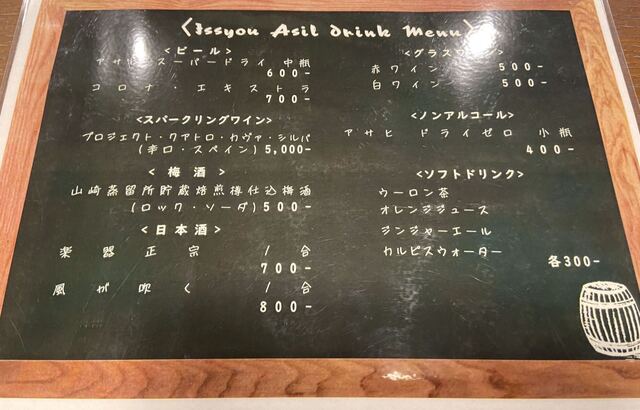 <Issyou Asil drink Menu>
<ビール>
アサヒ スーパードライ 中瓶
600-
コロナ・エキストラ
700-
<スパークリングワイン>
プロジェクト・クアトロ・カヴァ・シルバ
(辛口・スペイン) 5,000-
<梅酒>
山崎蒸留所貯蔵焙煎樽仕込梅酒
(ロック・ソーダ) 500-
<日本酒>
楽器正宗 1合
700-
風が吹く 1合
800-
<グラスワイン>
赤ワイン 500-
白ワイン 500-
<ノンアルコール>
アサヒ ドライゼロ 小瓶
400-
<ソフトドリンク>
ウーロン茶
オレンジジュース
ジンジャーエール
カルピスウォーター
各300-